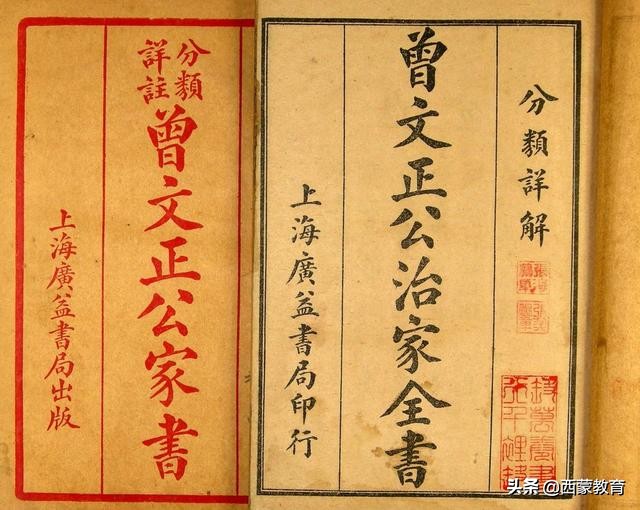 分類詳解
曾文正公治家全書
上海廣益書局印行
分類
詳註
曾文正公家書
上海廣益書局出版
头条 @西蒙教育